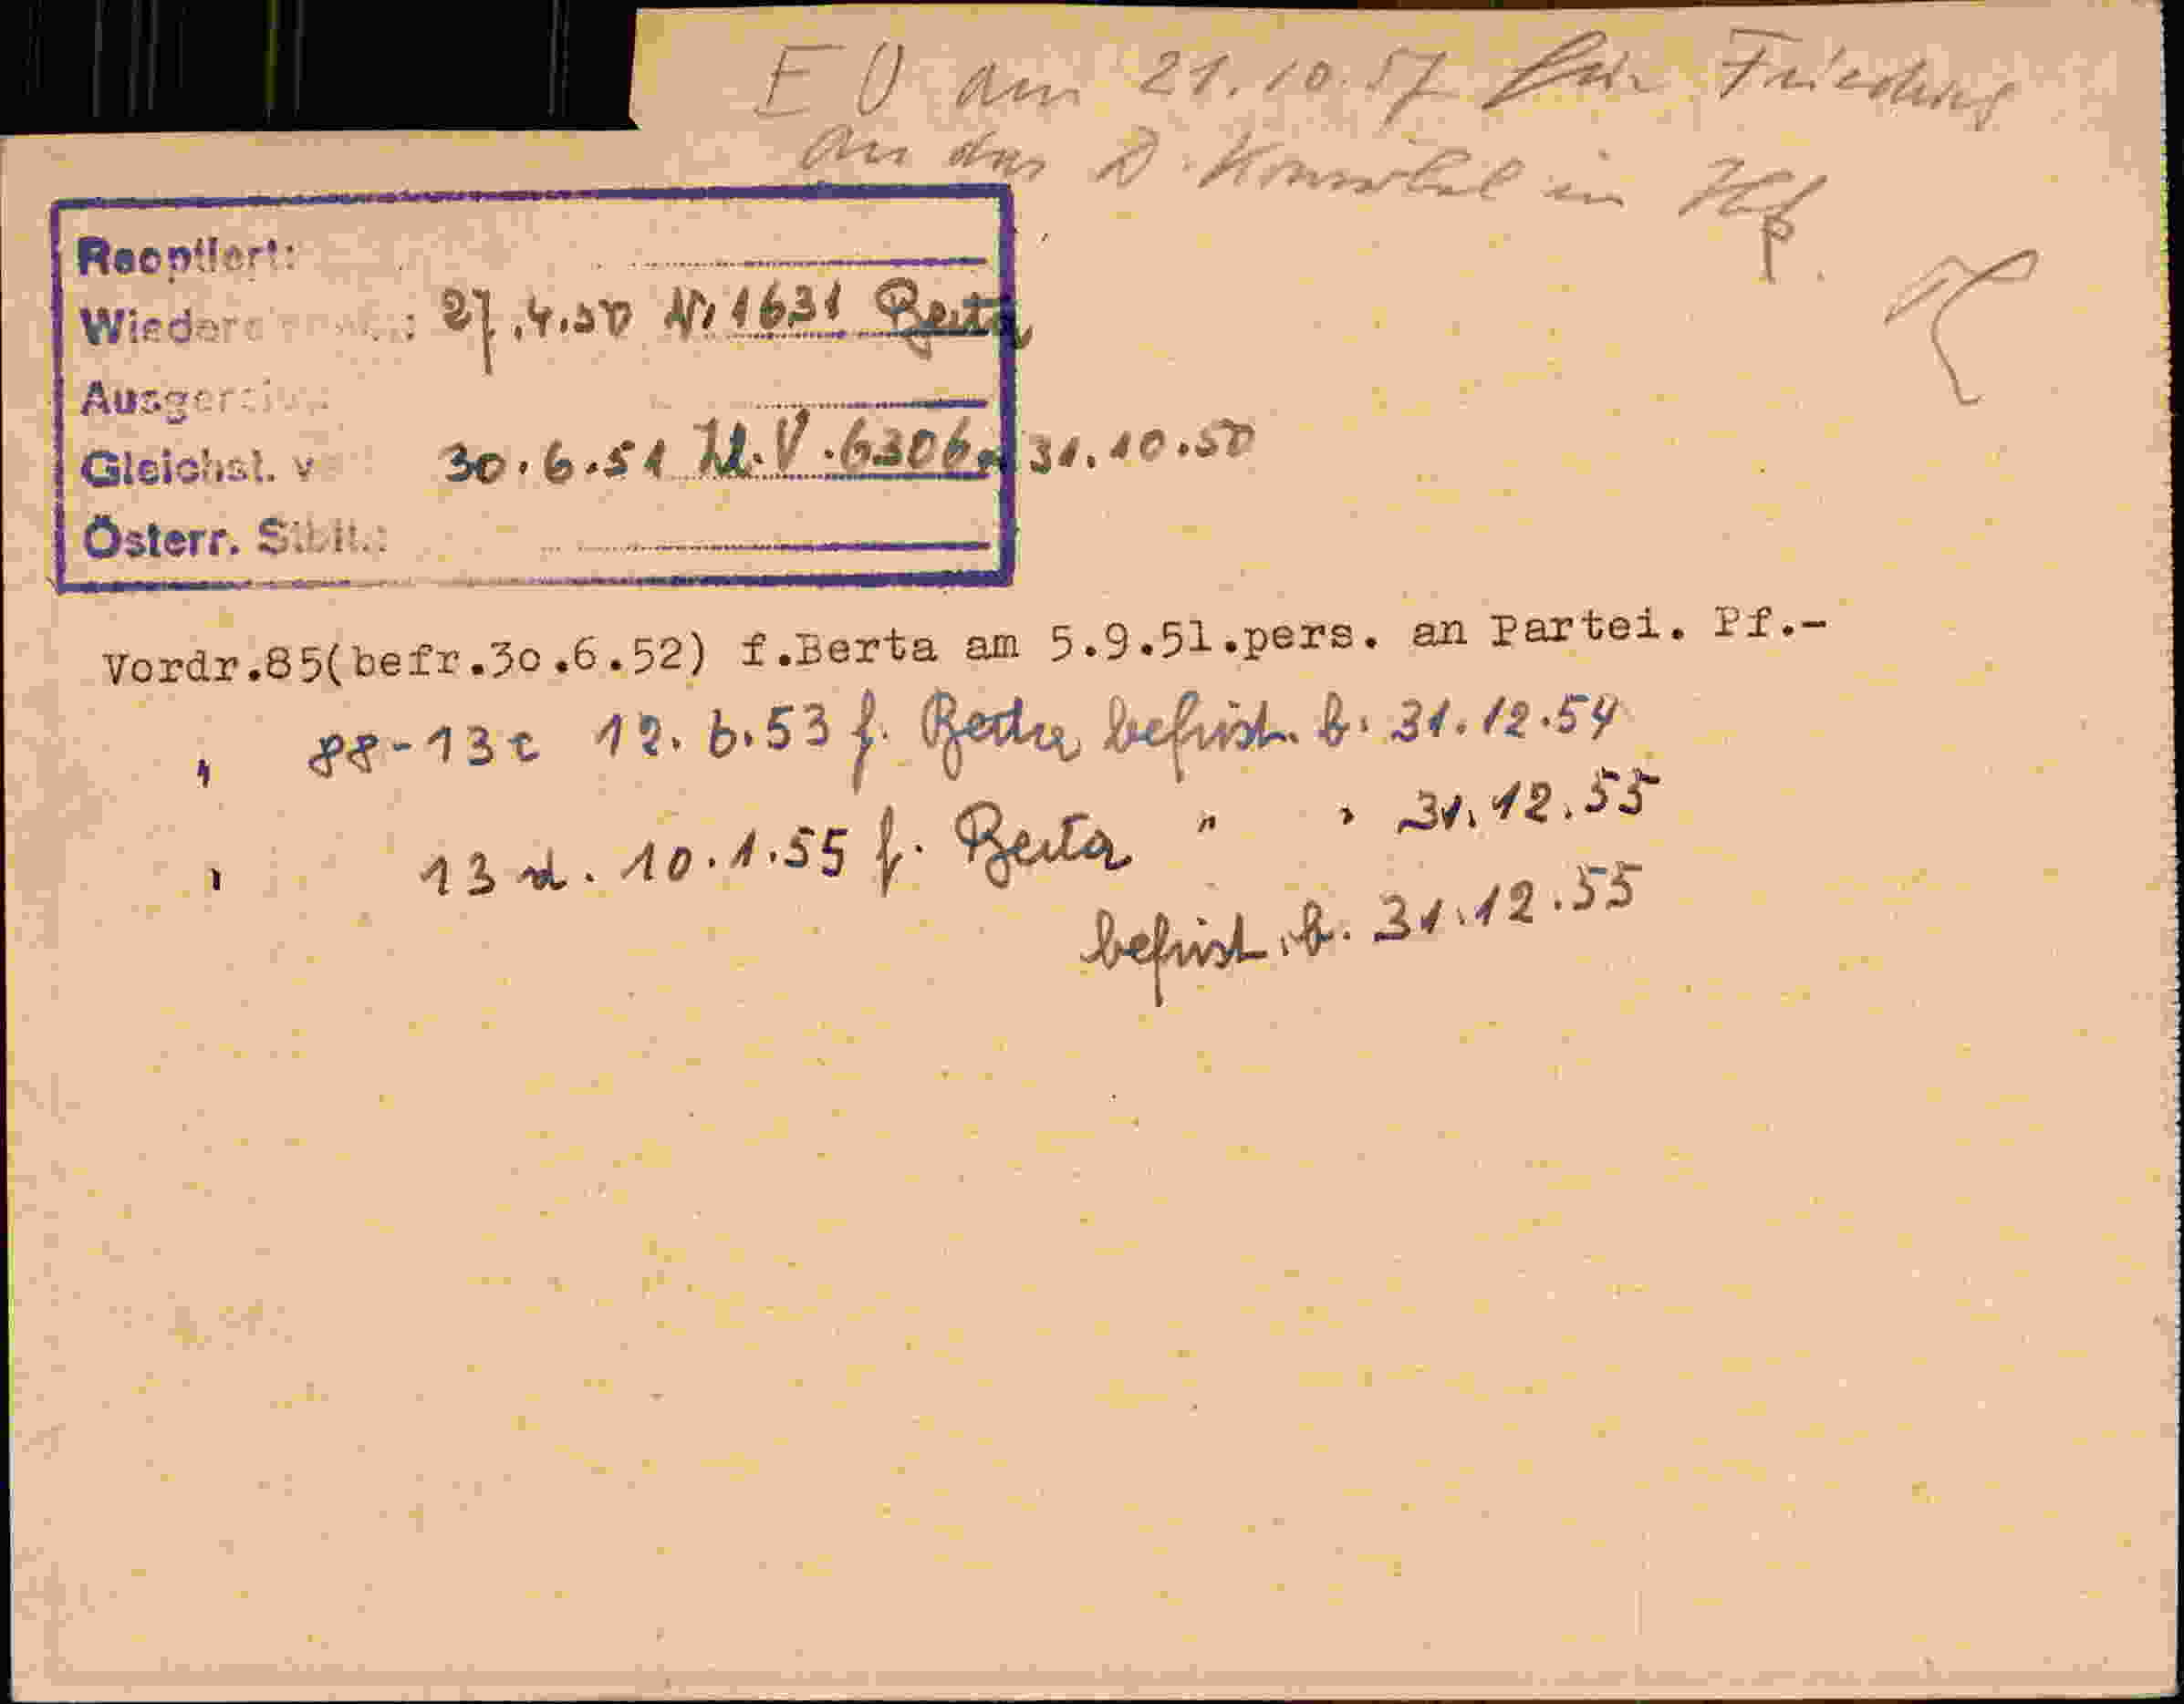 E V am 21.10.57 für Friedrich
an das D. Konsulat in
Reoptiert:
Wieder : 27.4.50 Nr 1631 Berta
Ausger
Gleichst. v 30.6.51 Zl. V. 6306 31.10.50
Österr. Stbft.:
Vordr.85(befr.30.6.52) f.Berta am 5.9.51.pers. an Partei. Pf.-
" 88-13c 12.6.53 f. Berta befrist. b. 31.12.54
" 13 d. 10.1.55 f. Berta " " 31.12.55
befrist. b. 31.12.55